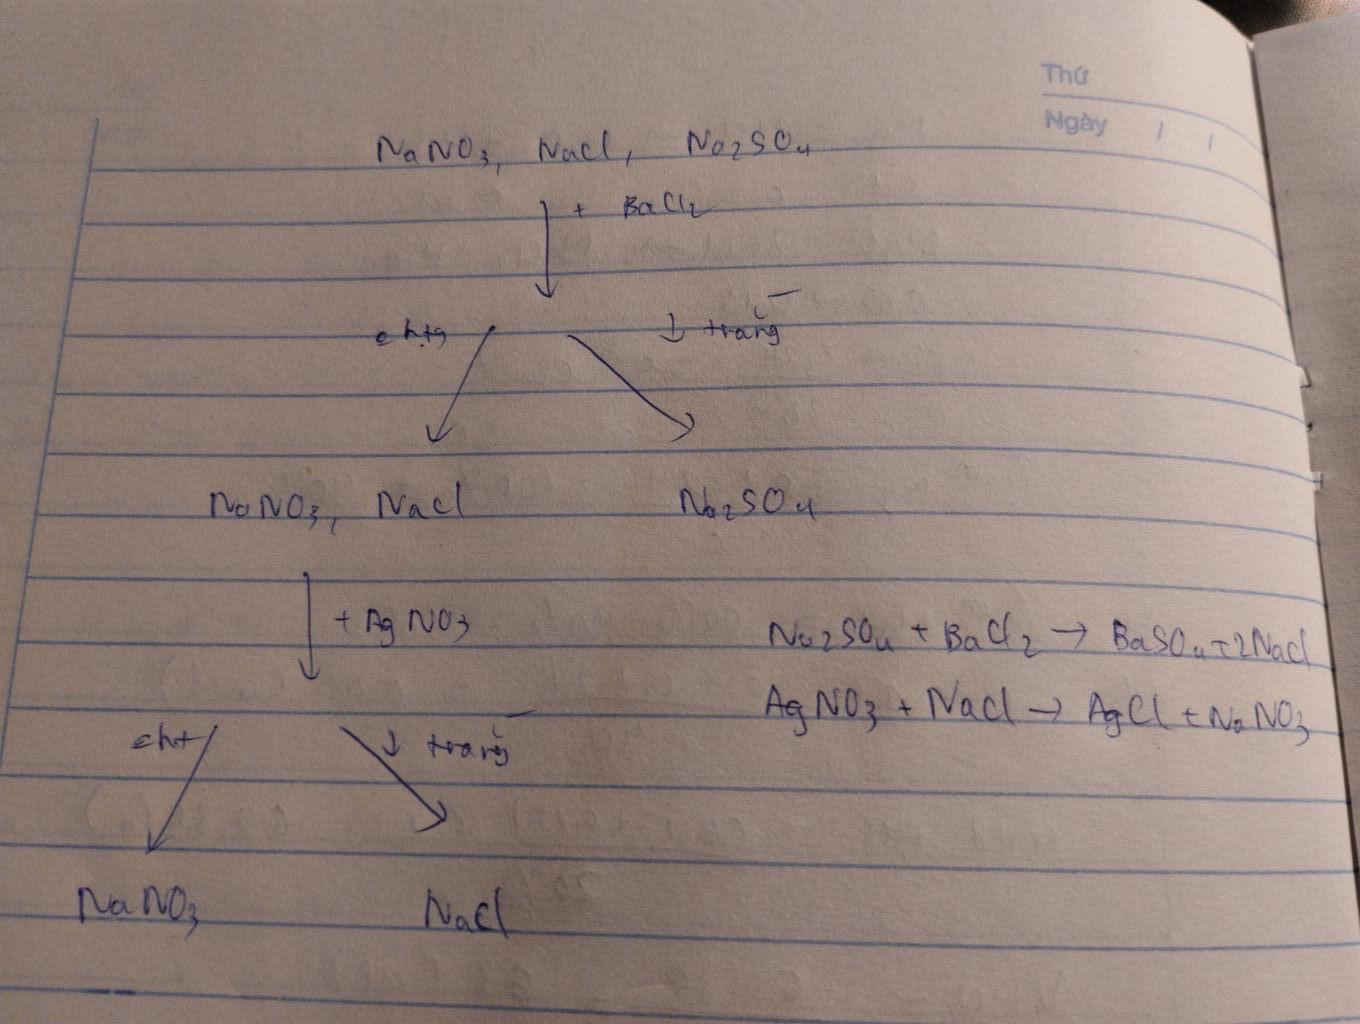 Thứ
Ngày / /
NaNO3, NaCl, Na2SO4
+ BaCl2
cht ↓ trắng
NaNO3, NaCl Na2SO4
+ AgNO3
Na2SO4 + BaCl2 → BaSO4 + 2NaCl
AgNO3 + NaCl → AgCl + NaNO3
cht ↓ trắng
NaNO3 NaCl